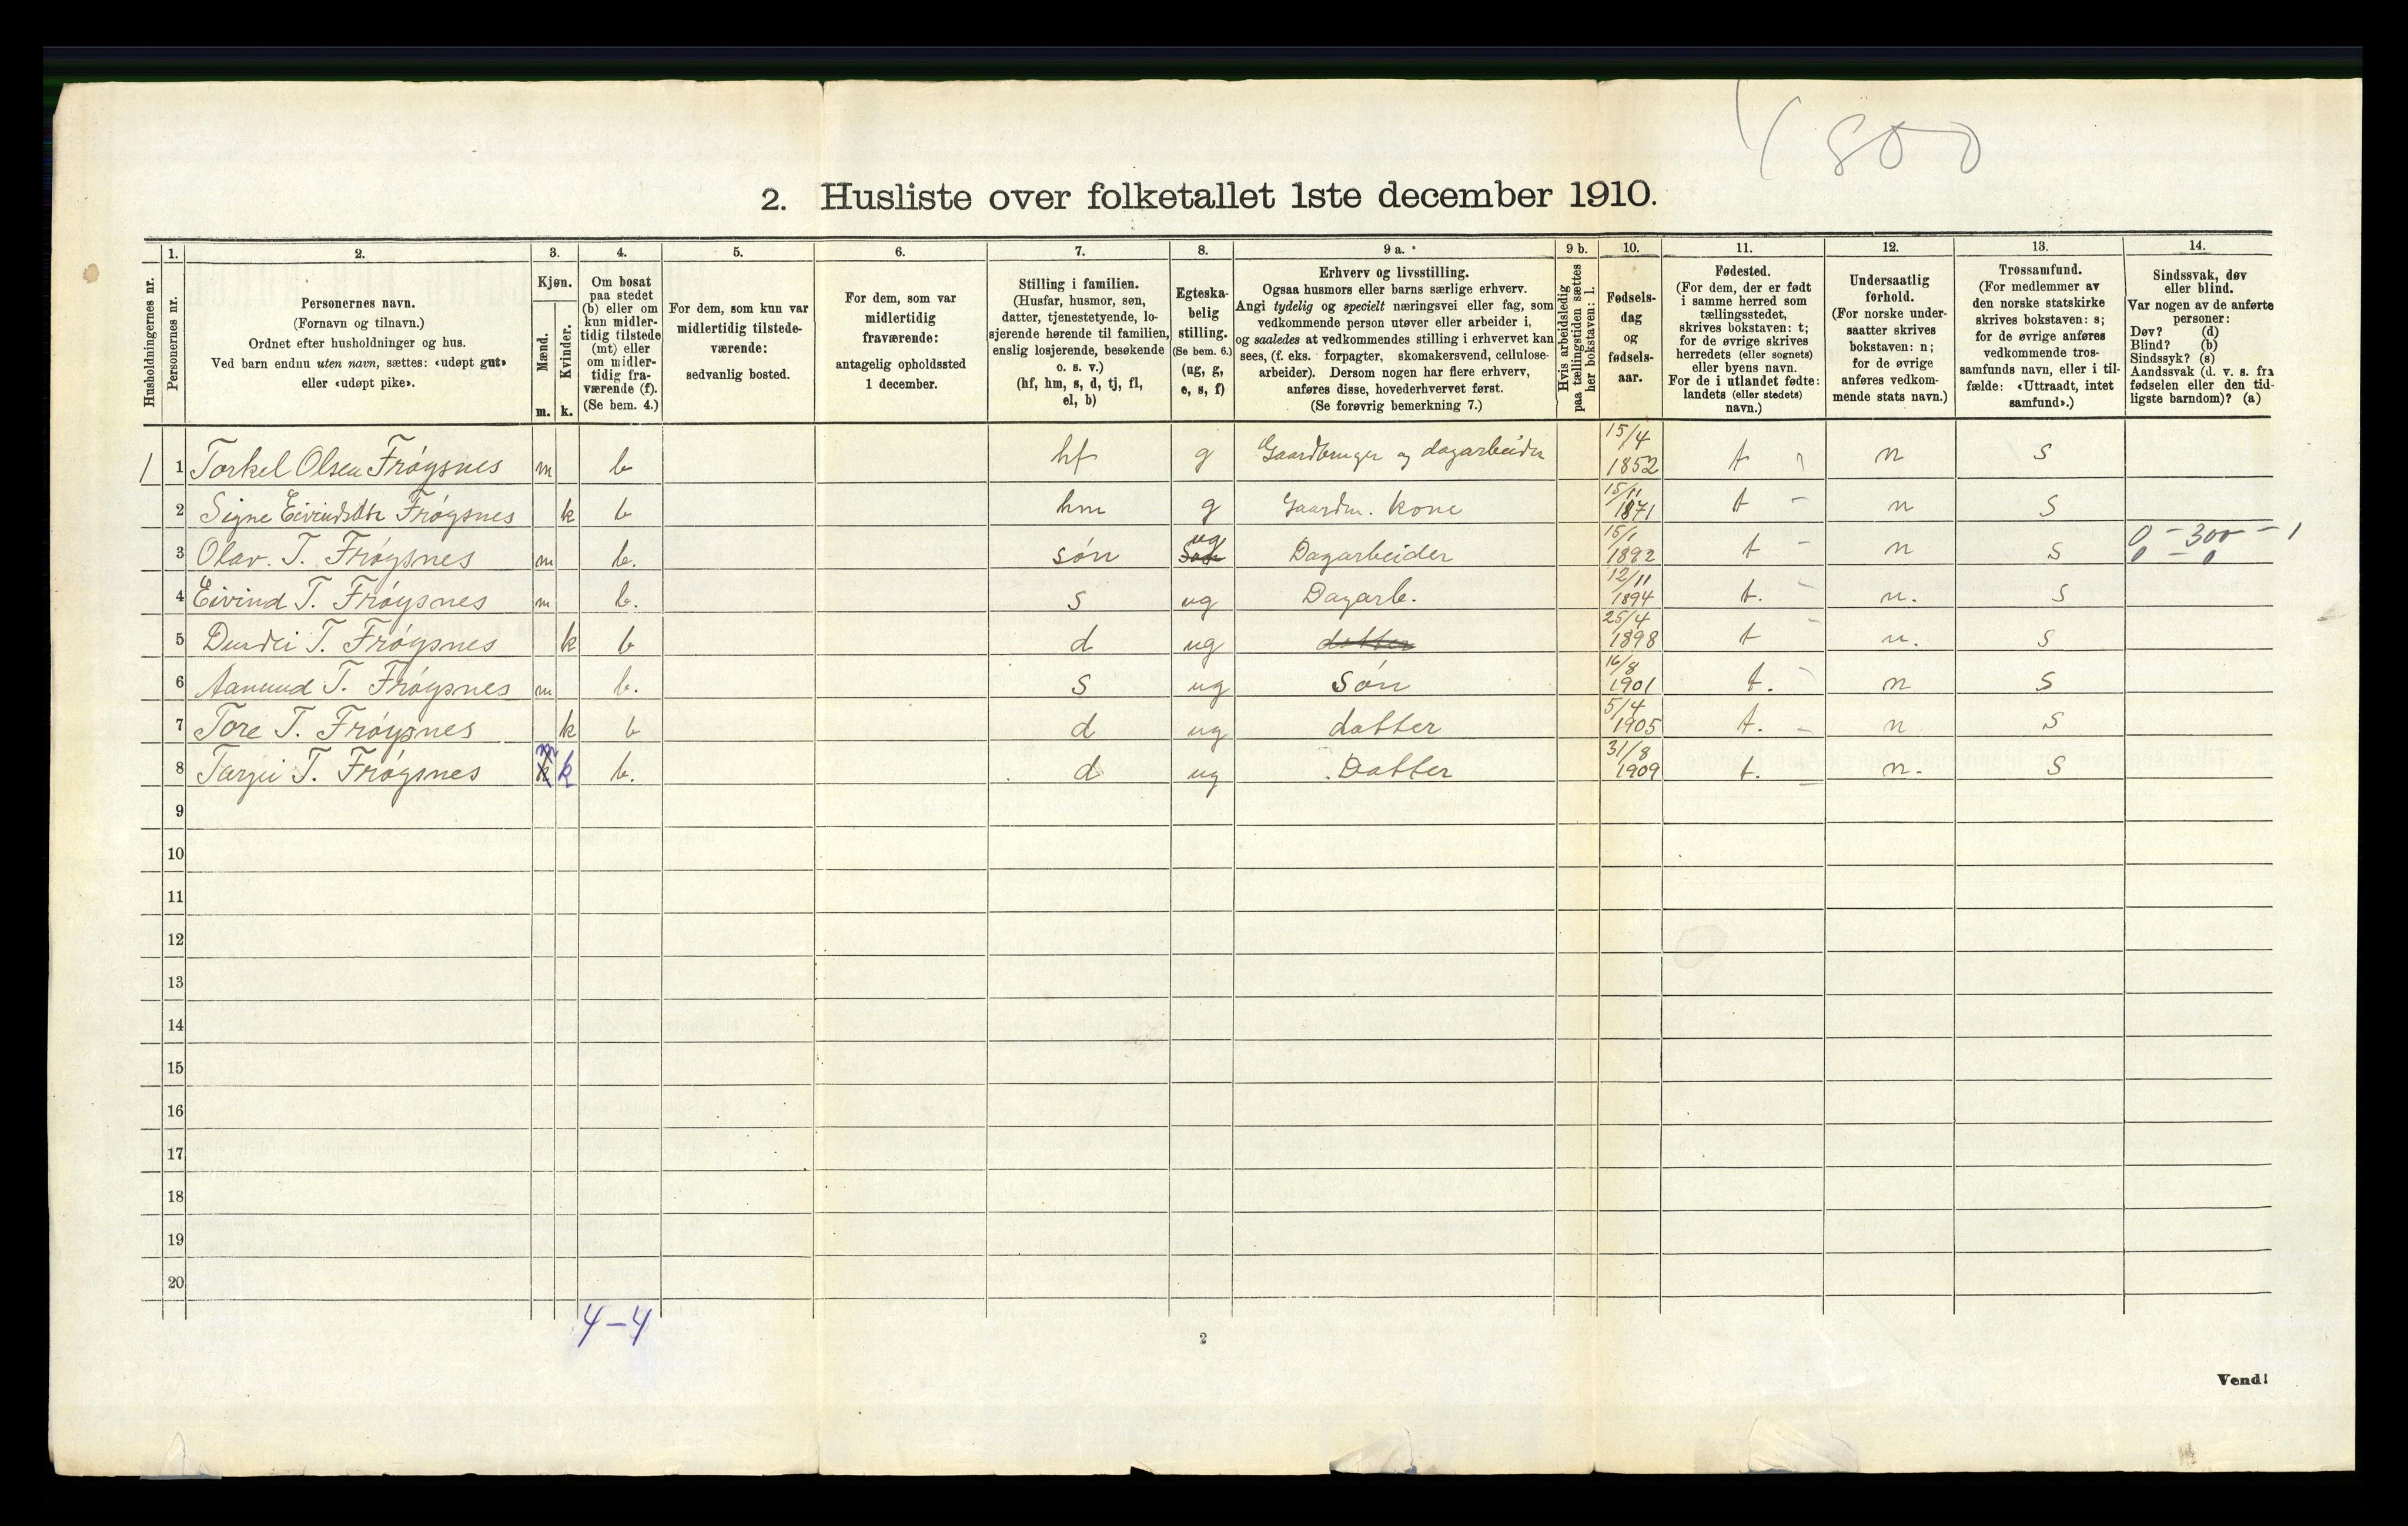 4 800
2. Husliste over folketallet 1ste december 1910.
1. 2. 3. 4. 5. 6. 7. 8. 9 a. 9 b. 10. 11. 12. 13. 14.
Husholdningernes nr.
Personernes nr.
Personernes navn.
(Fornavn og tilnavn.)
Ordnet efter husholdninger og hus.
Ved barn endnu uten navn, sættes: «udøpt gut»
eller «udøpt pike».
Kjøn.
Mænd.
Kvinder.
m. k.
Om bosat
paa stedet
(b) eller om
kun midler-
tidig tilstede
(mt) eller
om midler-
tidig fra-
værende (f).
(Se bem. 4.)
For dem, som kun var
midlertidig tilstede-
værende:
sedvanlig bosted.
For dem, som var
midlertidig
fraværende:
antagelig opholdssted
1 december.
Stilling i familien.
(Husfar, husmor, søn,
datter, tjenestetyende, lo-
sjerende hørende til familien,
enslig losjerende, besøkende
o. s. v.)
(hf, hm, s, d, tj, fl,
el, b)
Egteska-
belig
stilling.
(Se bem. 6.)
(ug, g,
e, s, f)
Erhverv og livsstilling.
Ogsaa husmors eller barns særlige erhverv.
Angi tydelig og specielt næringsvei eller fag, som
vedkommende person utøver eller arbeider i,
og saaledes at vedkommendes stilling i erhvervet kan
sees, (f. eks. forpagter, skomakersvend, cellulose-
arbeider). Dersom nogen har flere erhverv,
anføres disse, hovederhvervet først.
(Se forøvrig bemerkning 7.)
Hvis arbeidsledig
paa tællingstiden sættes
her bokstaven: l.
Fødsels-
dag
og
fødsels-
aar.
Fødested.
(For dem, der er født
i samme herred som
tællingsstedet,
skrives bokstaven: t;
for de øvrige skrives
herredets (eller sognets)
eller byens navn.
For de i utlandet fødte:
landets (eller stedets)
navn.)
Undersaatlig
forhold.
(For norske under-
saatter skrives
bokstaven: n;
for de øvrige
anføres vedkom-
mende stats navn.)
Trossamfund.
(For medlemmer av
den norske statskirke
skrives bokstaven: s;
for de øvrige anføres
vedkommende tros-
samfunds navn, eller i til-
fælde: «Uttraadt, intet
samfund».)
Sindssvak, døv
eller blind.
Var nogen av de anførte
personer:
Døv? (d)
Blind? (b)
Sindssyk? (s)
Aandssvak (d. v. s. fra
fødselen eller den tid-
ligste barndom)? (a)
1 1 Torkel Olsen Frøysnes m b hf g Gaardbruger og dagarbeider 15/4 1852 t n s
2 Signe Eivindsdtr Frøysnes k b hm g Gaardm. kone 15/11 1871 t - n s
3 Olav. T. Frøysnes m b. søn ug Dagarbeider 15/1 1892 t - n s 0 - 300 - 1
0 - 0
4 Eivind T. Frøysnes m b. s ug Dagarb. 12/11 1894 t. - n. s
5 T. Frøysnes k b d ug datter 25/4 1898 t - n. s
6 Aanund T. Frøysnes m b. s ug Søn 16/8 1901 t. - n s
7 Tore T. Frøysnes k b d ug datter 5/4 1905 t. - n s
8 Targei T. Frøysnes k b. d ug Datter 31/8 1909 t. - n. s
9
10
11
12
13
14
15
16
17
18
19
20
4-4
2
Vend!